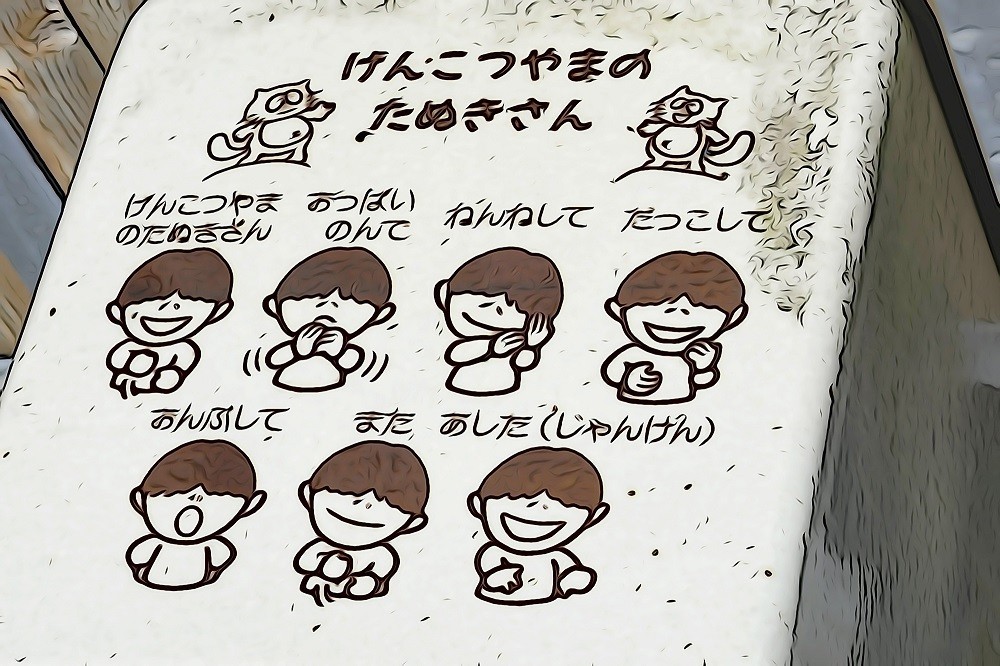 けんこつやまの
たぬきさん
けんこつやま
のたぬきさん
おっぱい
のんで
ねんねして
だっこして
おんぶして
また
あした(じゃんけん)